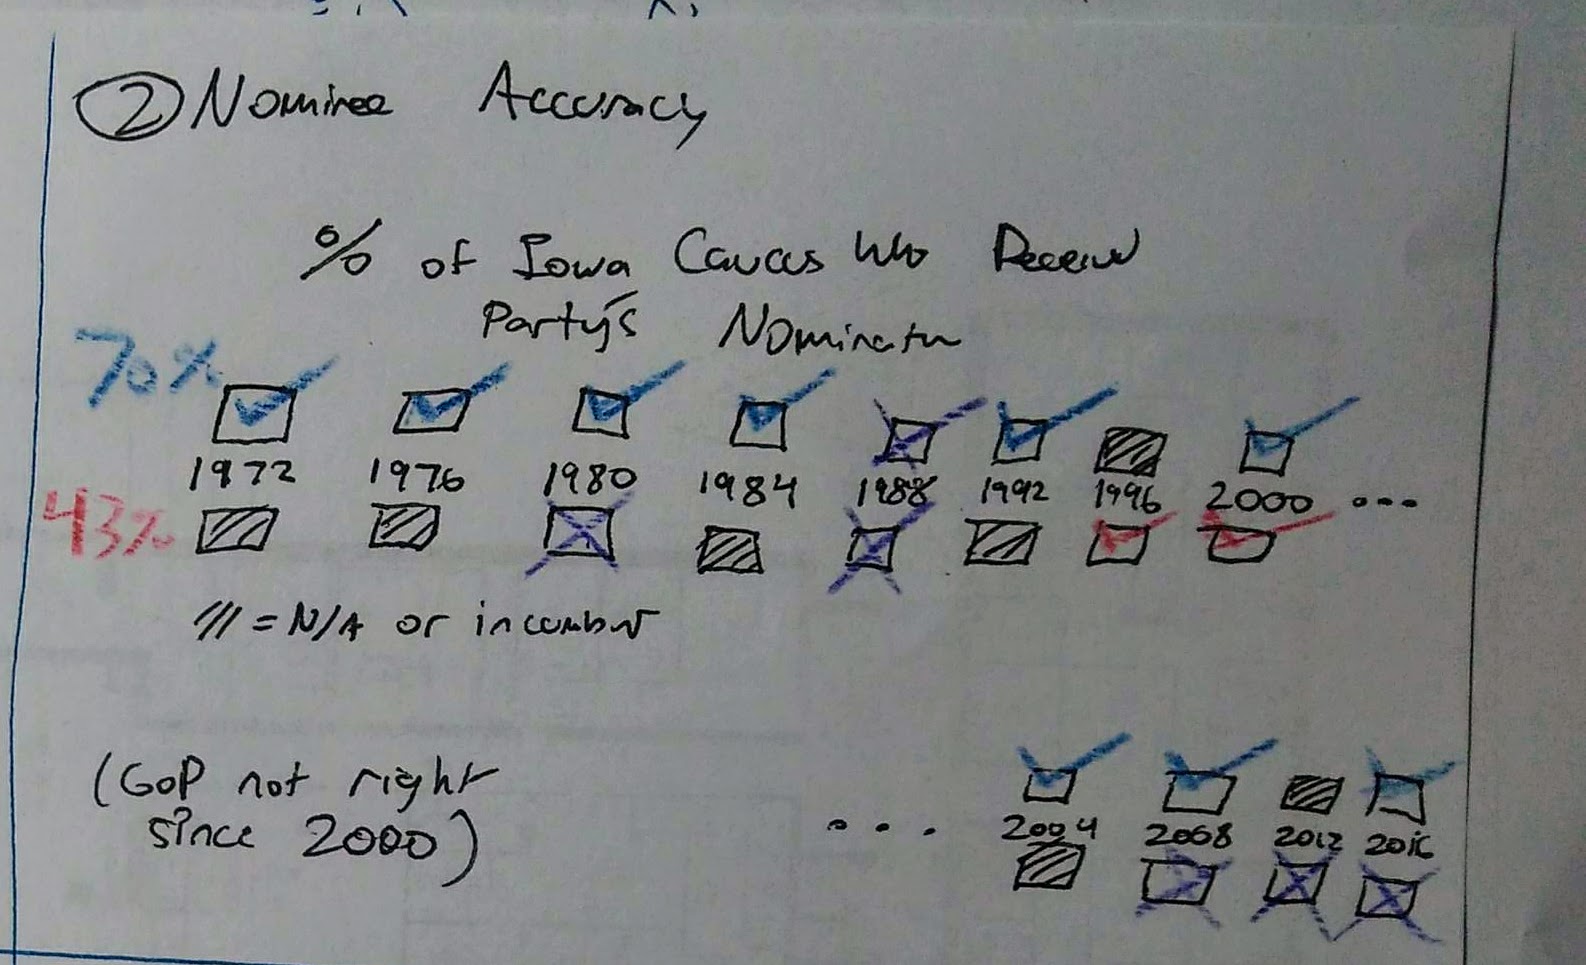 2 Nominee Accuracy
% of Iowa Caucus Who Receive
Party's Nomination
70%
1972 1976 1980 1984 1988 1992 1996 2000 ...
43%
/// = N/A or incumbent
(GOP not right
since 2000)
... 2004 2008 2012 2016